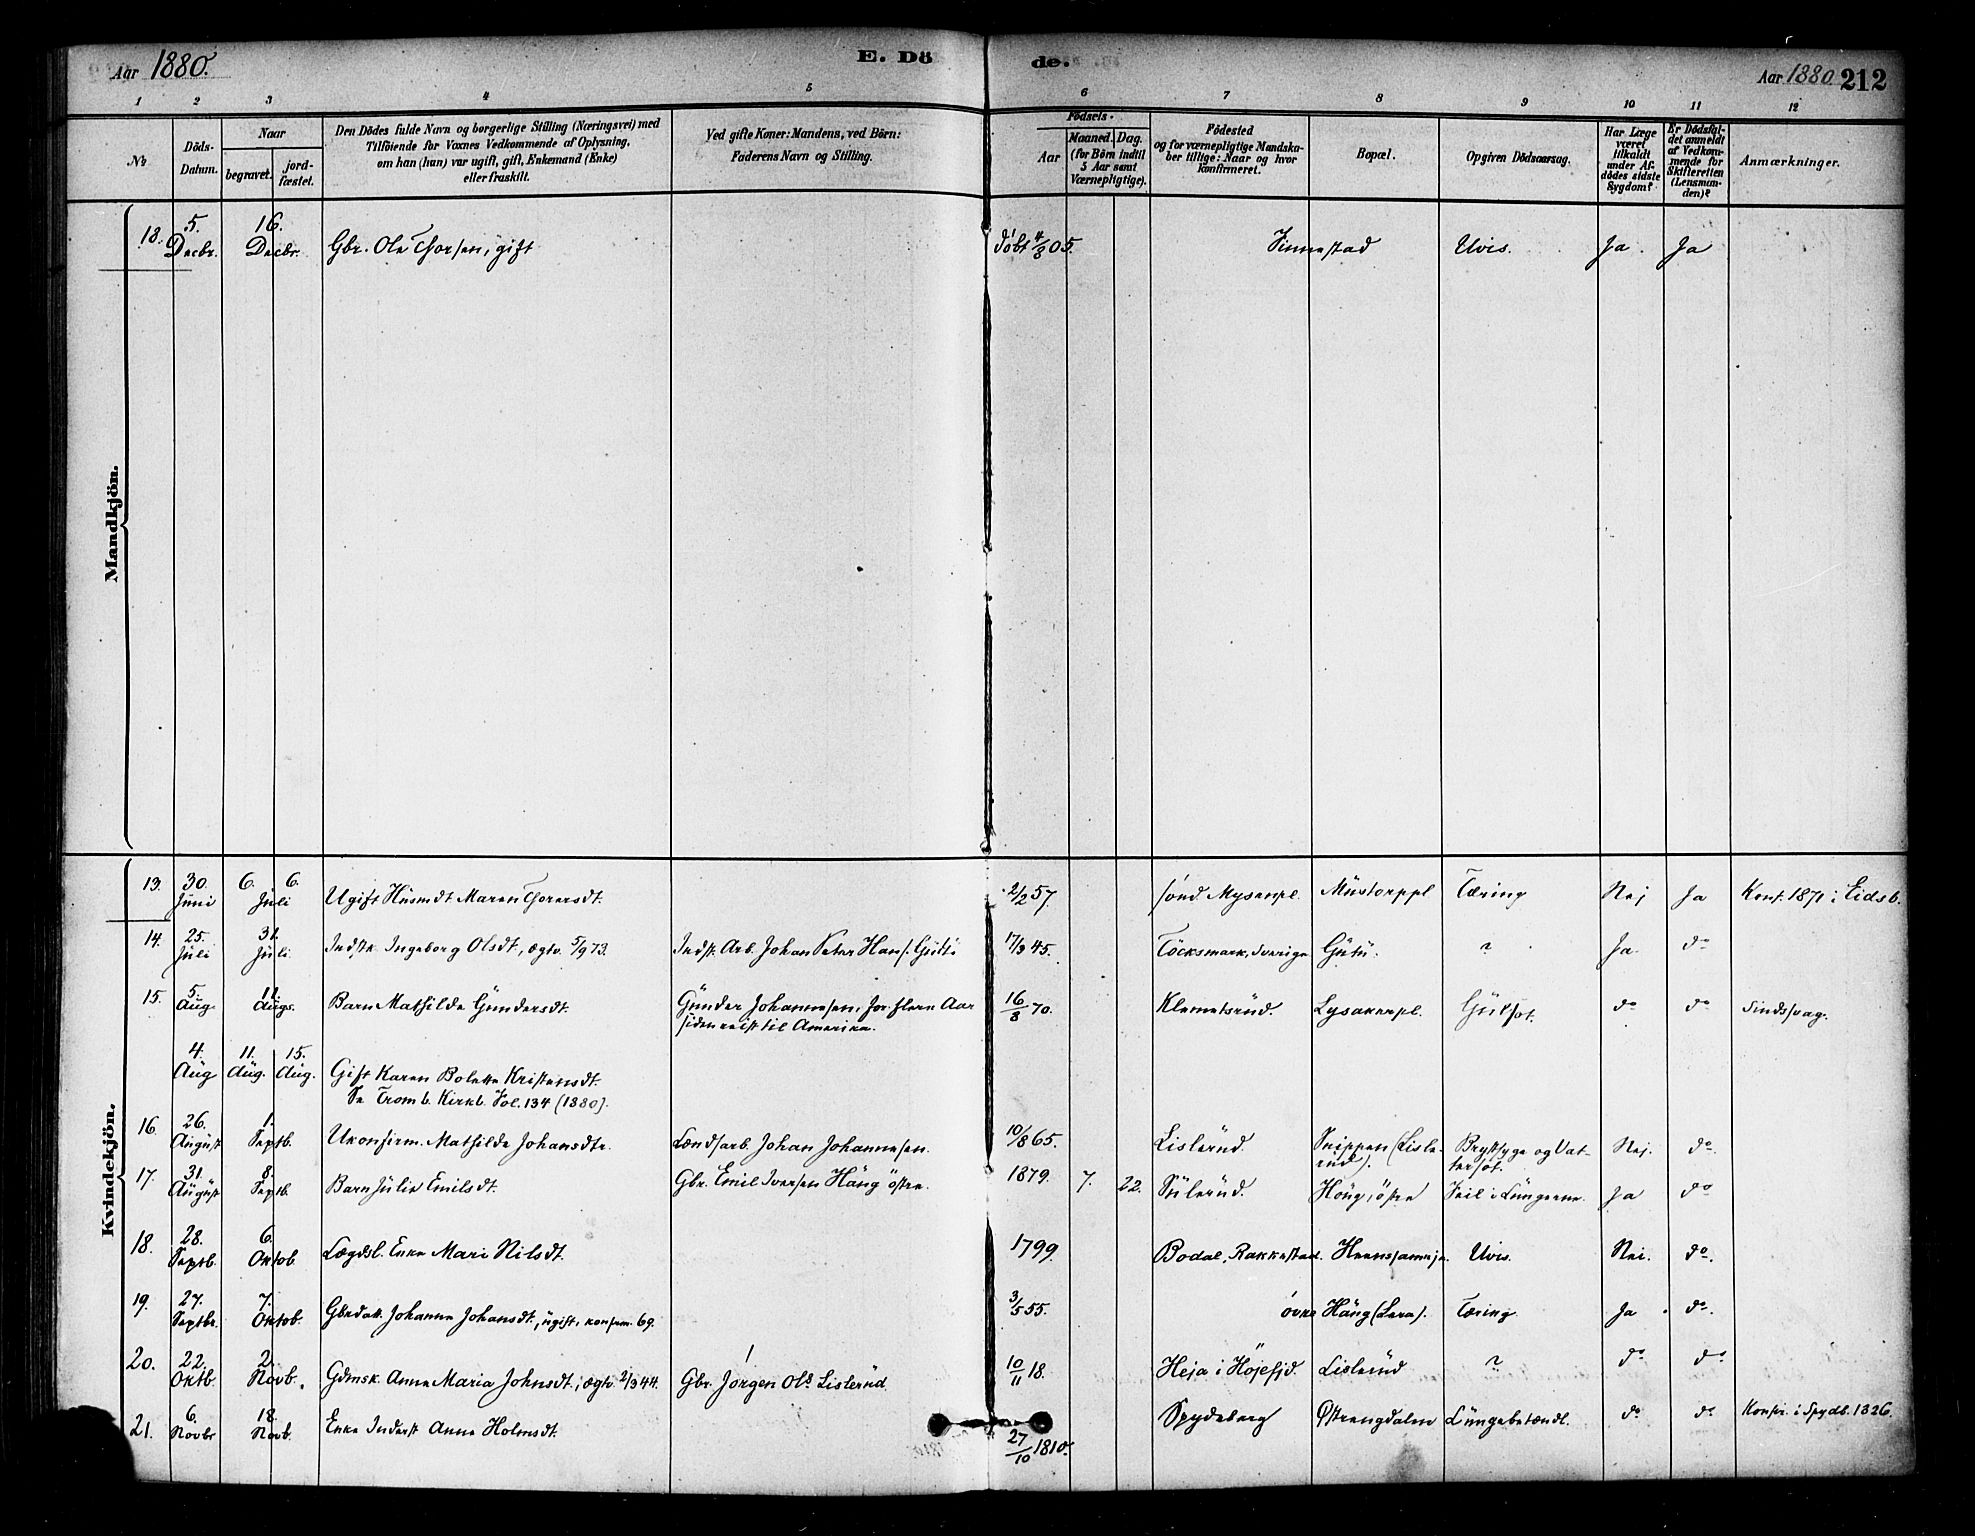 Aar 1880.
E. Dö
de.
Aar 1880. 212
1 2 3 4 5 6 7 8 9 10 11 12
No
Döds-
Datum.
Naar
begravet.
jord-
fæstet.
Den Dödes fulde Navn og borgerlige Stilling (Næringsvei) med
Tilföiende for Voxnes Vedkommende af Oplysning,
om han (hun) var ugift, gift, Enkemand (Enke)
eller fraskilt.
Ved gifte Koner: Mandens, ved Börn:
Faderens Navn og Stilling.
Födsels-
Aar
Maaned.
Dag.
(for Börn indtil
5 Aar samt
Værnepligtige).
Födested
og for værnepligtige Mandska-
ber tillige: Naar og hvor
konfirmeret.
Bopæl.
Opgiven Dödsaarsag.
Har Læge
været
tilkaldt
under Af-
dödes sidste
Sygdom?
Er Dödsfal-
det anmeldt
af Vedkom-
mende for
Skifteretten
(Lensman-
den)?
Anmærkninger.
Mandkjön.
18. 5. Decbr. 16. Decbr. Gbr. Ole Thorsen, gift döbt 4/8 05. Finnestad Uvis. Ja. Ja
Kvindekjön.
13. 30. Juni 6. 6. Juli Ugift Husmdt Maren Thorersdt. 2/2 57. sönd. Mysenpl. Mustorppl Tæring Nej Ja Konf. 1871 i Eidsb.
14. 25. Juli 31. Juli. Indstk. Ingeborg Olsdt, ægtv. 5/9 73. Indst. Arb. Johan Peter Hans. Gutu 17/9 45. Töcksmark, Sverige Gutu. ? Ja. do
15. 5. Aug. 11. Augs. Barn Mathilde Gundersdt. Gunder Johannesen, for flere Aar
siden reist til Amerika. 16/8 70. Klemetsrud. Lysakerpl. Gulsot. do do Sindssvag.
4. Aug 11. Aug. 15. Aug. Gift Karen Bolette Kristensdt.
Se Tromb. Kirkb. Fol. 134 (1880).
16. 26. August 1. Septb. Ukonfirm. Mathilde Johansdtr. Landsarb. Johan Johannesen. 10/8 65. Lislerud. Snippen (Lisle-
rud). Brystsyge og Vat-
tersot. Nej. do.
17. 31. August 8. Septb. Barn Julie Emilsdt. Gbr. Emil Iversen Haug östre. 1879. 7. 22. Sulerud. Haug, östre Feil i Lungerne. Ja do
18. 28. Septb. 6. Oktob. Lægdsl. Enke Mari Nilsdt. 1799. Bodal, Rakkestad. Uvis. Nei. do.
19. 27. Septbr. 7. Oktob. Gbrdatt. Johanne Johansdt., ugift, konfirm. 69. 3/5 55. övre Haug (Lera). Tæring. Ja do.
20. 22. Oktb. 2. Novb. Gdmsk. Anne Maria Johnsdt., ægtv. 2/3 44. Gbr. Jörgen Ols Lislerud 10/11 18. Heja i Höjefjd. Lislerud ? do do
21. 6. Novbr 18. Novb. Enke Inderst Anne Holmsdt. 27/10 1810. Spydeberg Östengdalen Lungebetændl. do do Konfir. i Spydb. 1826.